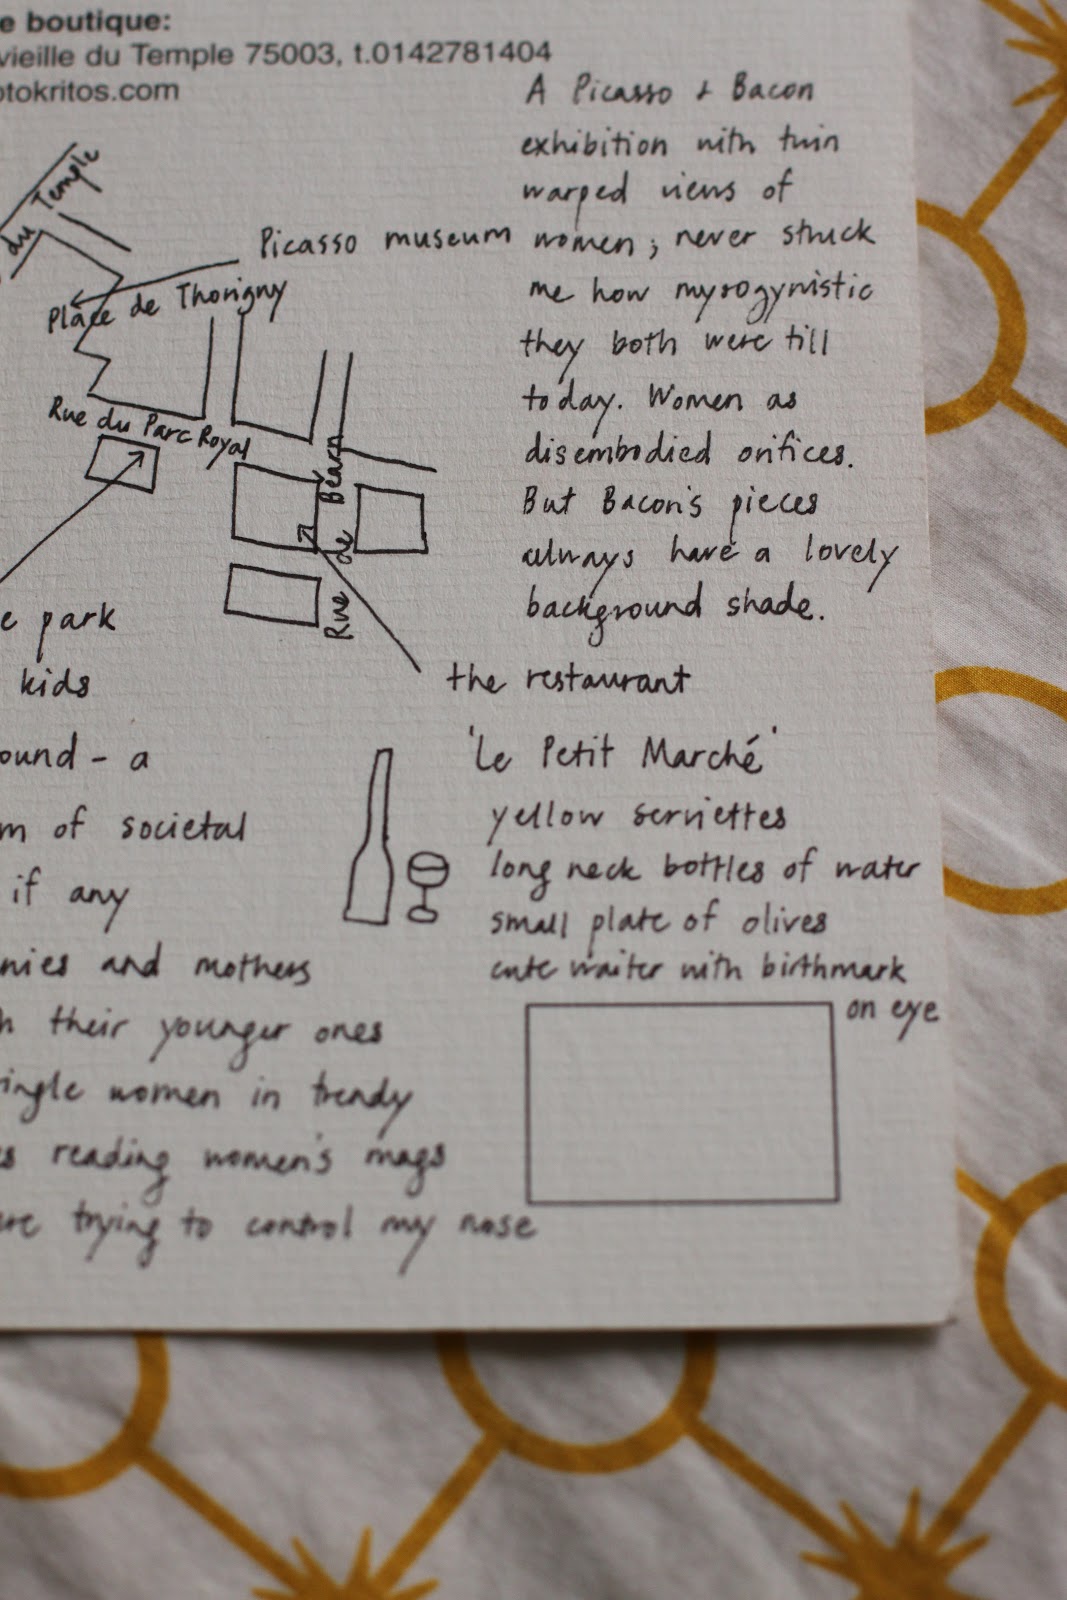 e boutique:
vieille du Temple 75003, t.0142781404
otokritos.com
A Picasso + Bacon
exhibition with twin
warped views of
women; never struck
me how mysogynistic
they both were till
today. Women as
disembodied orifices.
But Bacon's pieces
always have a lovely
background shade.
du Temple
Picasso museum
Place de Thorigny
Rue du Parc Royal
Rue de Bearn
e park
kids
the restaurant
'Le Petit Marché'
yellow serviettes
long neck bottles of water
small plate of olives
cute waiter with birthmark
on eye
ound - a
m of societal
if any
nies and mothers
h their younger ones
ingle women in trendy
s reading women's mags
re trying to control my nose